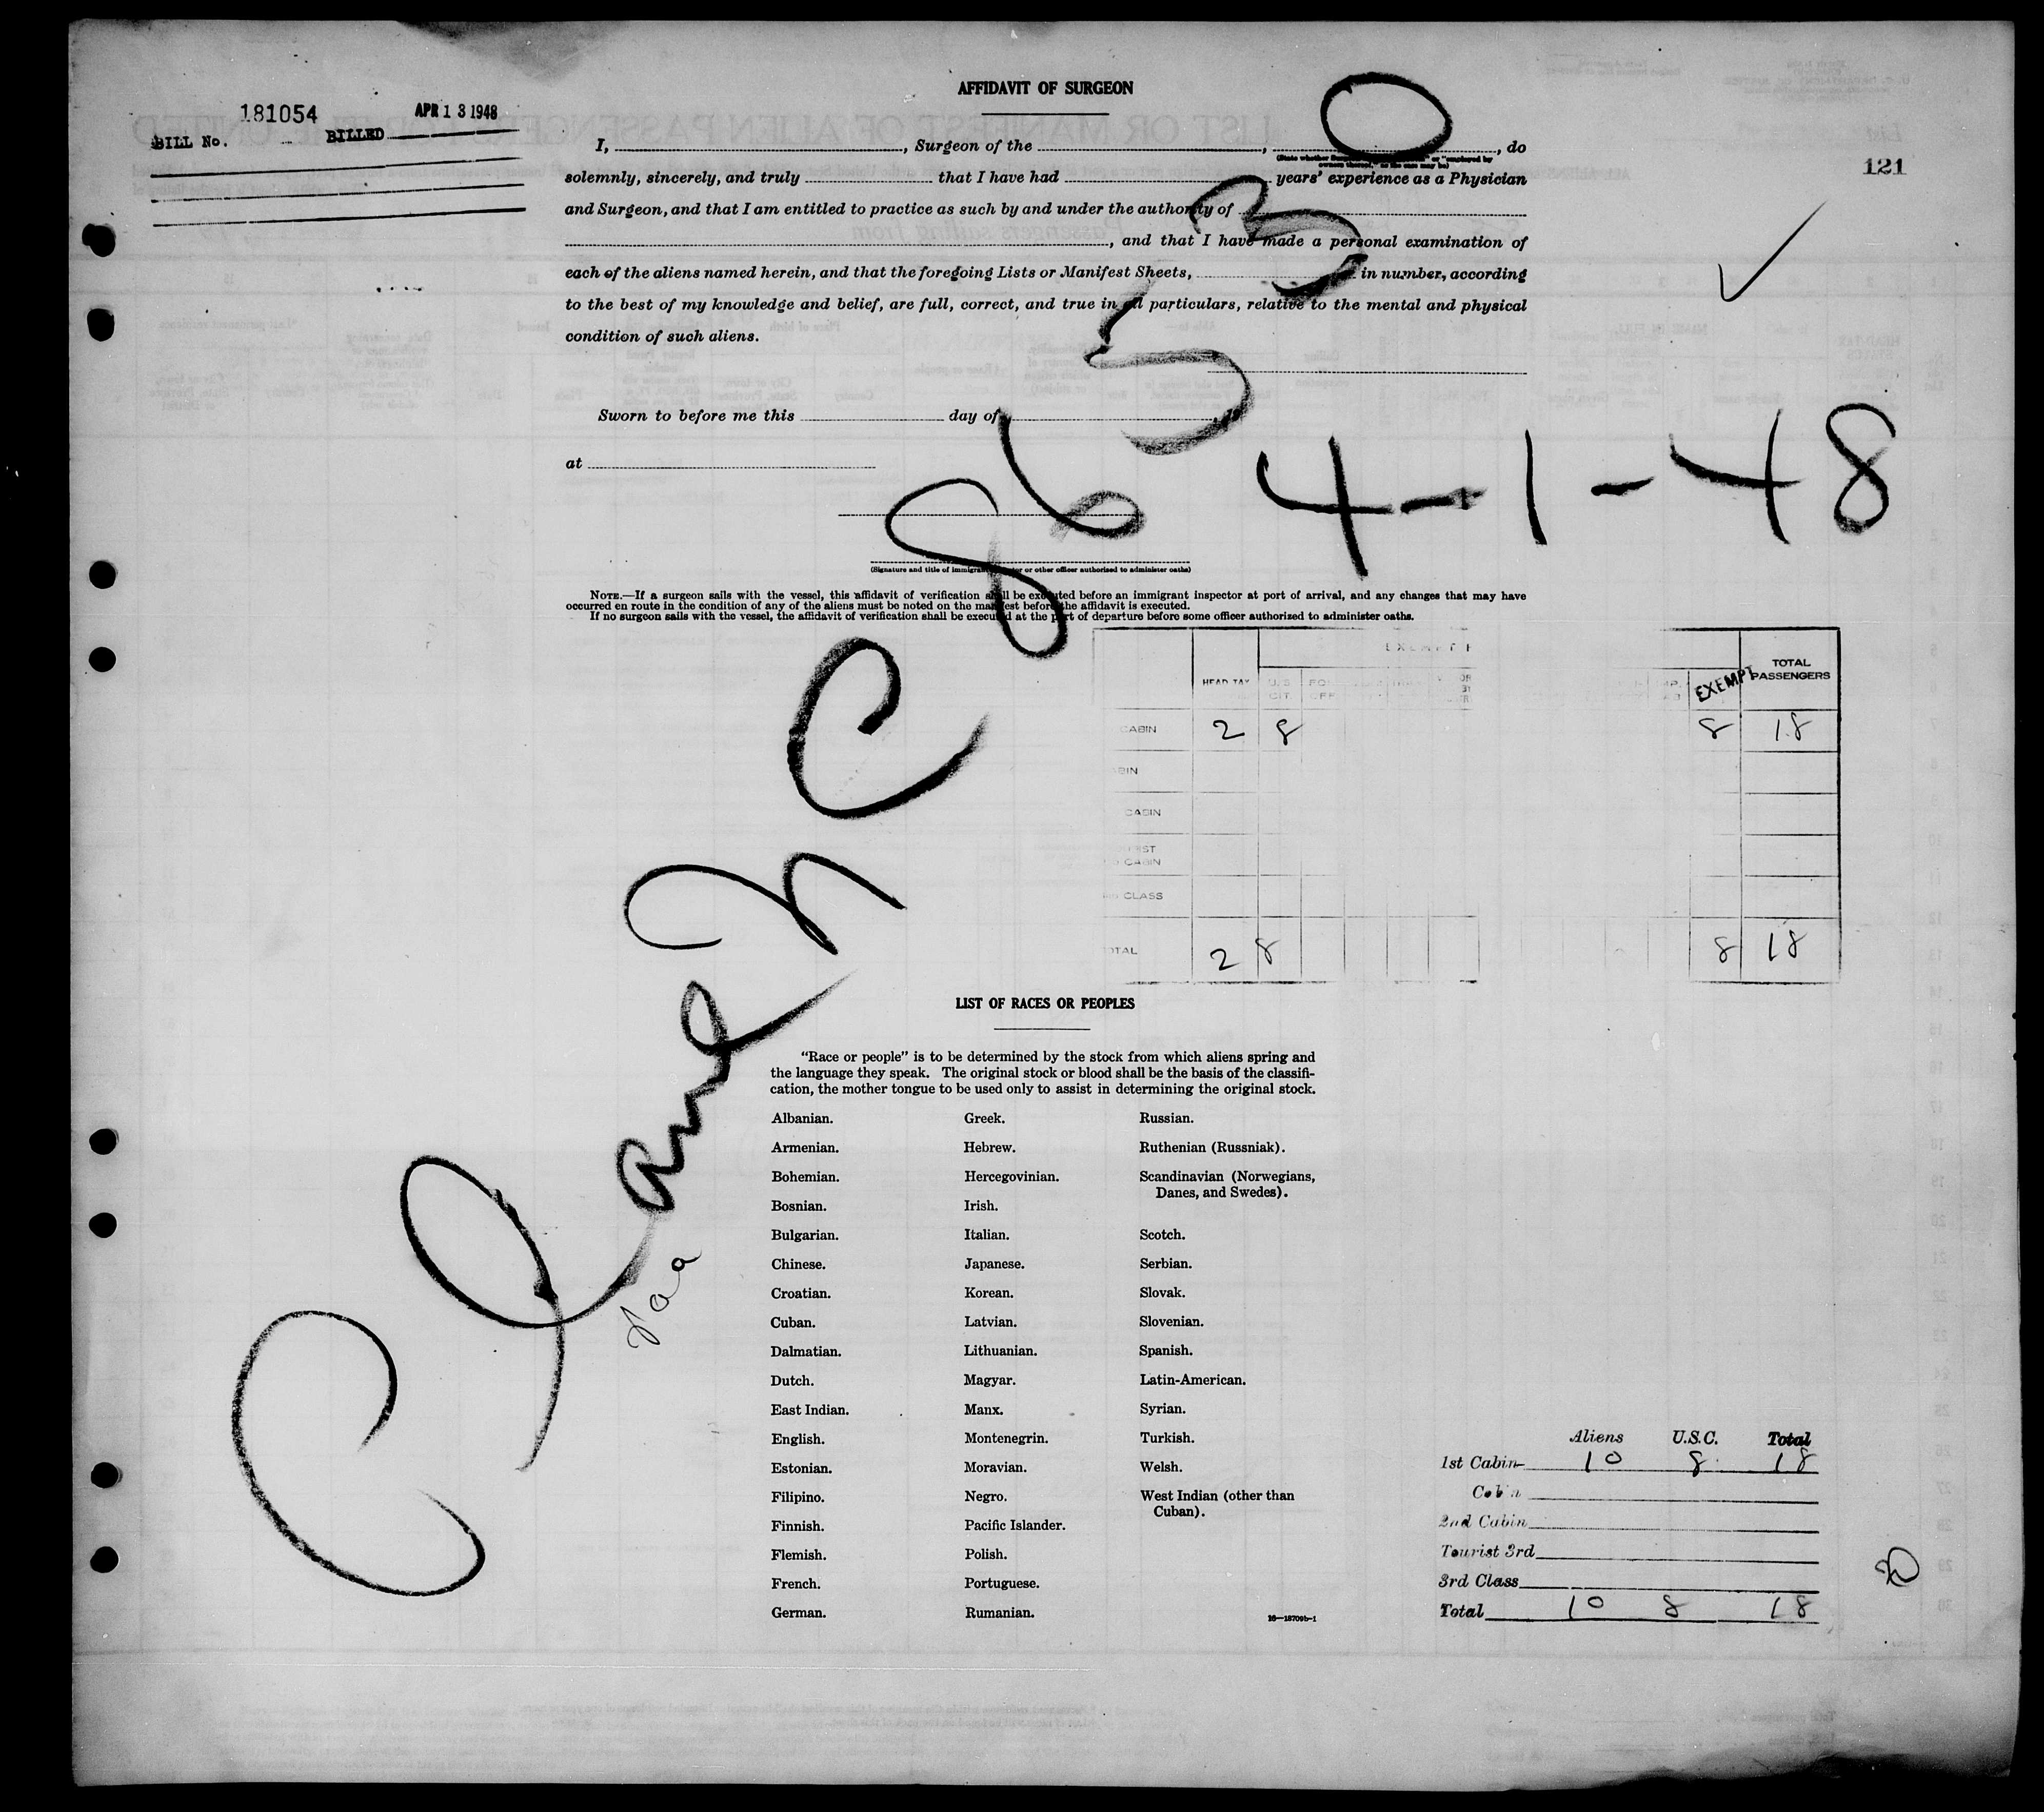 181054
APR 13 1948
BILL No. BILLED
121
AFFIDAVIT OF SURGEON
I, , Surgeon of the , , do
solemnly, sincerely, and truly that I have had years' experience as a Physician
and Surgeon, and that I am entitled to practice as such by and under the authority of
, and that I have made a personal examination of
each of the aliens named herein, and that the foregoing Lists or Manifest Sheets, in number, according
to the best of my knowledge and belief, are full, correct, and true in all particulars, relative to the mental and physical
condition of such aliens.
Sworn to before me this day of
at
4-1-48
NC 86530
(Signature and title of immigrant or other officer authorized to administer oaths)
NOTE.—If a surgeon sails with the vessel, this affidavit of verification shall be executed before an immigrant inspector at port of arrival, and any changes that may have
occurred en route in the condition of any of the aliens must be noted on the manifest before the affidavit is executed.
If no surgeon sails with the vessel, the affidavit of verification shall be executed at the port of departure before some officer authorized to administer oaths.
HEAD TAX U.S. CIT. EXEMPT TOTAL PASSENGERS
CABIN 2 8 8 18
CABIN
CLASS
TOTAL 2 8 8 18
LIST OF RACES OR PEOPLES
"Race or people" is to be determined by the stock from which aliens spring and
the language they speak. The original stock or blood shall be the basis of the classifi-
cation, the mother tongue to be used only to assist in determining the original stock.
Albanian. Greek. Russian.
Armenian. Hebrew. Ruthenian (Russniak).
Bohemian. Hercegovinian. Scandinavian (Norwegians,
Danes, and Swedes).
Bosnian. Irish.
Bulgarian. Italian. Scotch.
Chinese. Japanese. Serbian.
Croatian. Korean. Slovak.
Cuban. Latvian. Slovenian.
Dalmatian. Lithuanian. Spanish.
Dutch. Magyar. Latin-American.
East Indian. Manx. Syrian.
English. Montenegrin. Turkish.
Estonian. Moravian. Welsh.
Filipino. Negro. West Indian (other than
Cuban).
Finnish. Pacific Islander.
Flemish. Polish.
French. Portuguese.
German. Rumanian.
16—18709b-1
Aliens U.S.C. Total
1st Cabin 10 8 18
Cabin
2nd Cabin
Tourist 3rd
3rd Class
Total 10 8 18